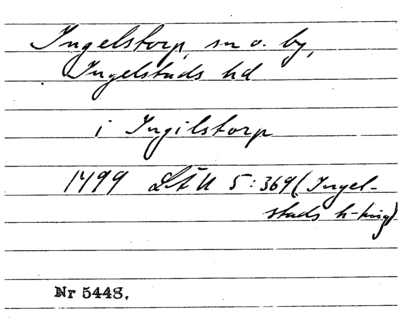 Ingelstorp, sn o. by,
Ingelstads hd
i Ingilstorp
1499 LÄU 5:369 (Ingel-
stads h-ting)
Nr 5448.